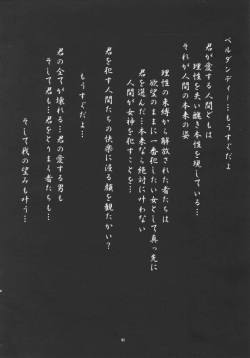 ベルダンディー…もうすぐだよ
君が愛する人間どもは
理性を失い醜き本性を現している…
それが人間の本来の姿
理性の束縛から解放された者たちは
欲望のままに一番犯したい女として真っ先に
君を選んだ…本来なら絶対に叶わない
人間が女神を犯すことを…
君を犯す人間たちの快楽に浸る顔を観たかい？
もうすぐだよ…
君の全てが壊れる…君の愛する男も
そして君も…君をとりまく者たちも…
そして我の望みも叶う…